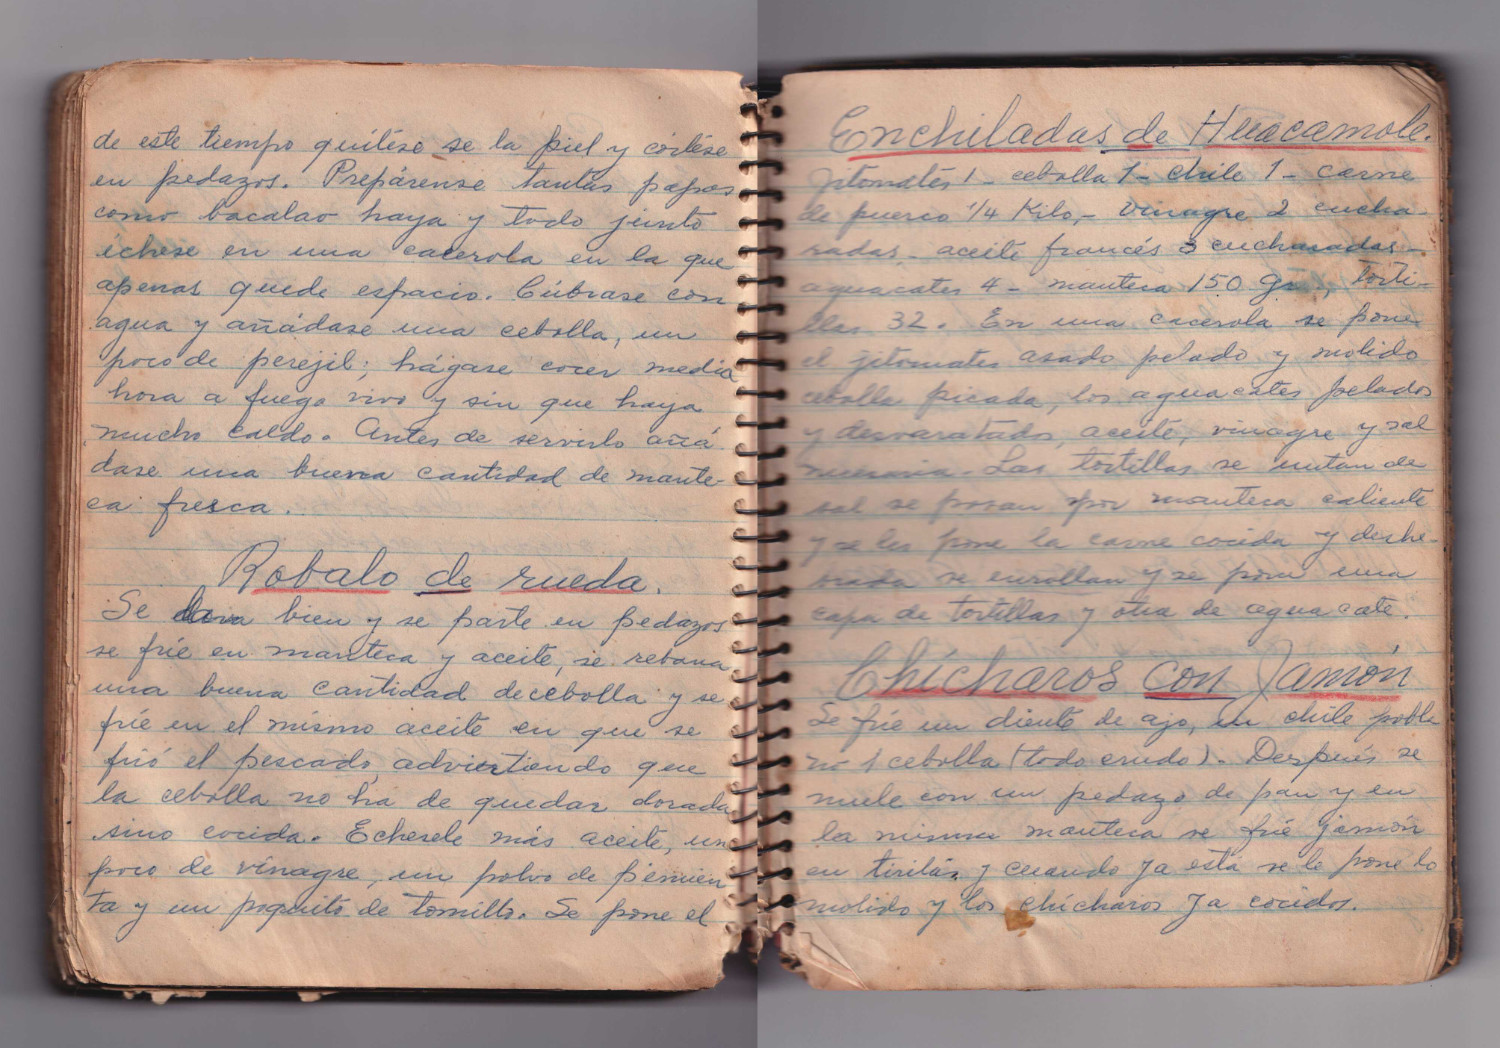 de este tiempo quítese se la piel y córtese
en pedazos. Prepárense tantas papas
como bacalao haya y todo junto
échese en una cacerola en la que
apenas quede espacio. Cúbrase con
agua y añádase una cebolla, un
poco de perejil; hágase cocer media
hora a fuego vivo y sin que haya
mucho caldo. Antes de servirlo añá
dase una buena cantidad de mante-
ca fresca.
Robalo de rueda.
Se lava bien y se parte en pedazos
se fríe en manteca y aceite, se rebana
una buena cantidad de cebolla y se
fríe en el mismo aceite en que se
frió el pescado, advirtiendo que
la cebolla no ha de quedar dorada
sino cocida. Echesele más aceite, un
poco de vinagre, un polvo de pimien
ta y un poquito de tomillo. Se pone el
Enchiladas de Huacamole.
Jitomates 1 - cebolla 1 - chile 1 - carne
de puerco 1/4 Kilo, - vinagre 2 cucha-
radas - aceite francés 3 cucharadas -
aguacates 4 - manteca 150 Grs, torti-
llas 32. En una cacerola se pone
el jitomates asado pelado y molido
cebolla picada, los aguacates pelados
y desvaratados, aceite, vinagre y sal
necesaria. Las tortillas se untan de
sal se pasan por manteca caliente
y se les pone la carne cocida y deshe-
brada se enrollan y se pone una
capa de tortillas y otra de aguacate.
Chícharos con Jamón
Se fríe un diente de ajo, un chile pobla
no 1 cebolla (todo crudo). Después se
muele con un pedazo de pan y en
la misma manteca se fríe jamón
en tirilas y cuando ya está se le pone lo
molido y los chícharos ya cocidos.